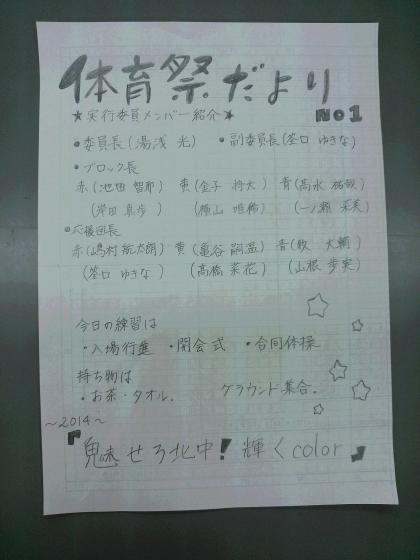 体育祭だより
No1
★実行委員メンバー紹介★
・委員長(湯浅 光) ・副委員長(筌口 ゆきな)
・ブロック長
赤(池田 智耶) 黄(金子 将大) 青(高水 祐哉)
(岸田 真歩) (横山 唯稀) (一ノ瀬 采美)
・応援団長
赤(嶋村 航太朗) 黄(亀谷 嗣温) 青(牧 大輔)
(筌口 ゆきな) (高橋 菜花) (山根 歩実)
今日の練習は
・入場行進 ・開会式 ・合同体操
持ち物は
・お茶・タオル. グラウンド集合.
～2014～
『魅せろ北中!輝くcolor』